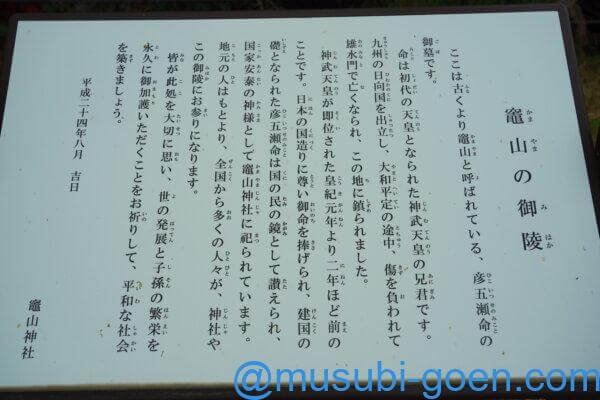 竈山の御陵
ここは古くより竈山と呼ばれている、彦五瀬命の
御墓です。
命は初代の天皇となられた神武天皇の兄君です。
九州の日向国を出立し、大和平定の途中、傷を負われて
雄水門で亡くなられ、この地に鎮られました。
神武天皇が即位された皇紀元年より二年ほど前の
ことです。日本の国造りに尊い御命を捧げられ、建国の
礎となられた彦五瀬命は国の民の鏡として讃えられ、
国家安泰の神様として竈山神社に祀られています。
地元の人はもとより、全国から多くの人々が、神社や
この御陵にお参りになります。
皆が此処を大切に思い、世の発展と子孫の繁栄を
永久に御加護いただくことをお祈りして、平和な社会
を築きましょう。
平成二十四年八月 吉日
竈山神社
@musubi-goen.com